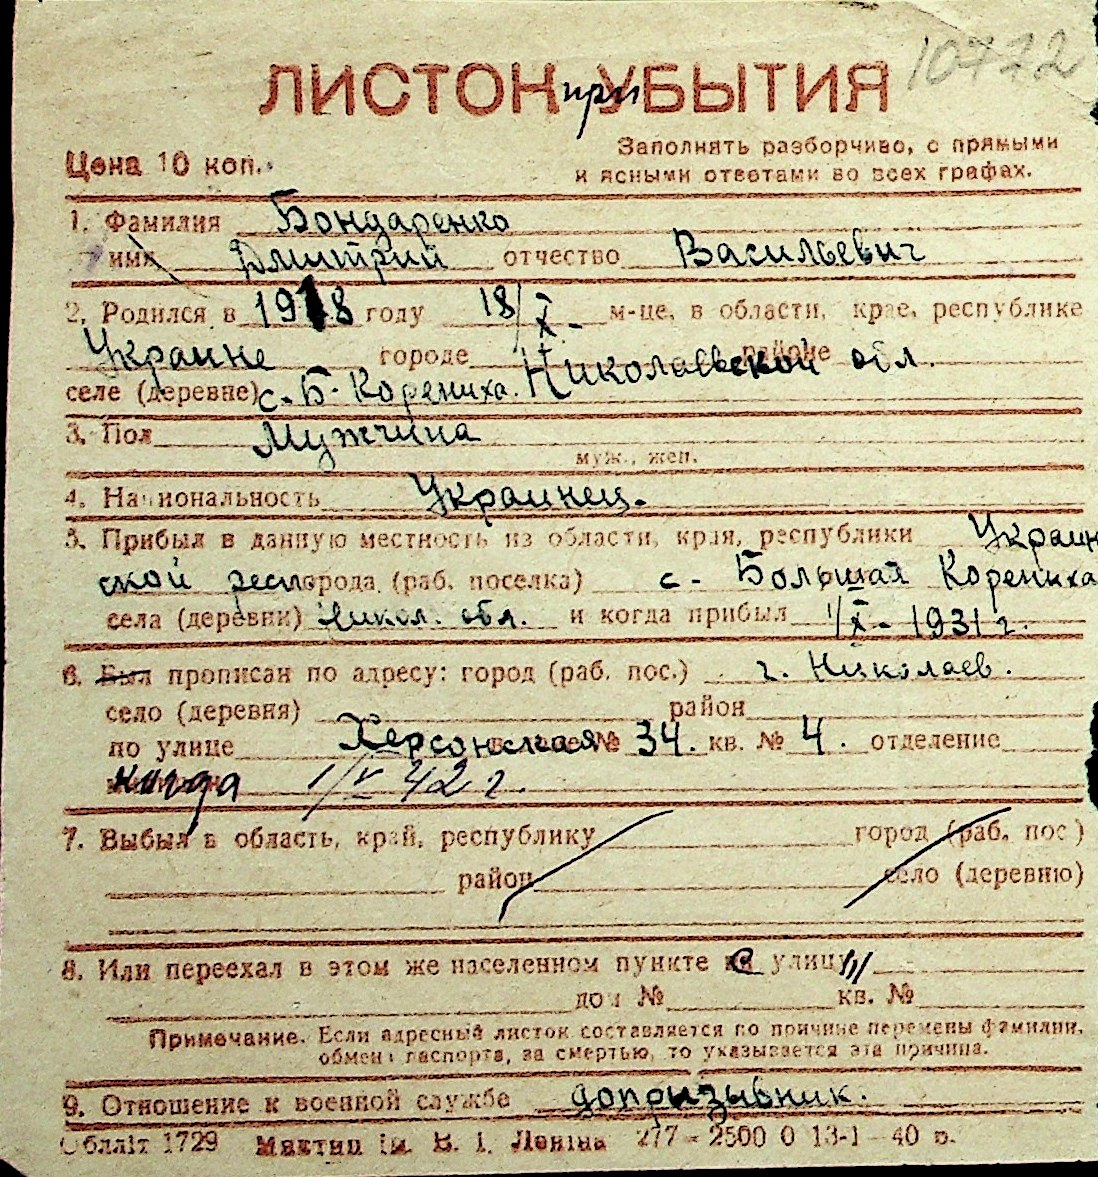 10772
ЛИСТОК при УБЫТИЯ
Цена 10 коп.
Заполнять разборчиво, с прямыми
и ясными ответами во всех графах.
1. Фамилия Бондаренко
имя Дмитрий отчество Васильевич
2. Родился в 1918 году 18/X- м-це, в области, крае, республике
Украине городе районе Николаевской обл.
селе (деревне) с. Б- Корениха.
3. Пол Мужчина
муж., жен.
4. Национальность Украинец.
5. Прибыл в данную местность из области, края, республики Украин
ской респ города (раб. поселка) с- Большая Корениха
села (деревни) Никол. обл. и когда прибыл 1/X- 1931 г.
6. Был прописан по адресу: город (раб. пос.) г. Николаев.
село (деревня) район
по улице Херсонская № 34. кв. № 4. отделение
когда 1/V 42 г.
7. Выбыл в область, край, республику город (раб. пос)
район село (деревню)
8. Или переехал в этом же населенном пункте с улицы
дом № кв. №
Примечание. Если адресный листок составляется по причине перемены фамилии,
обмена паспорта, за смертью, то указывается эта причина.
9. Отношение к военной службе допризывник.
Обллiт 1729 Миктип iм. В. I. Ленiна 277 - 2500 0 13-1 - 40 р.